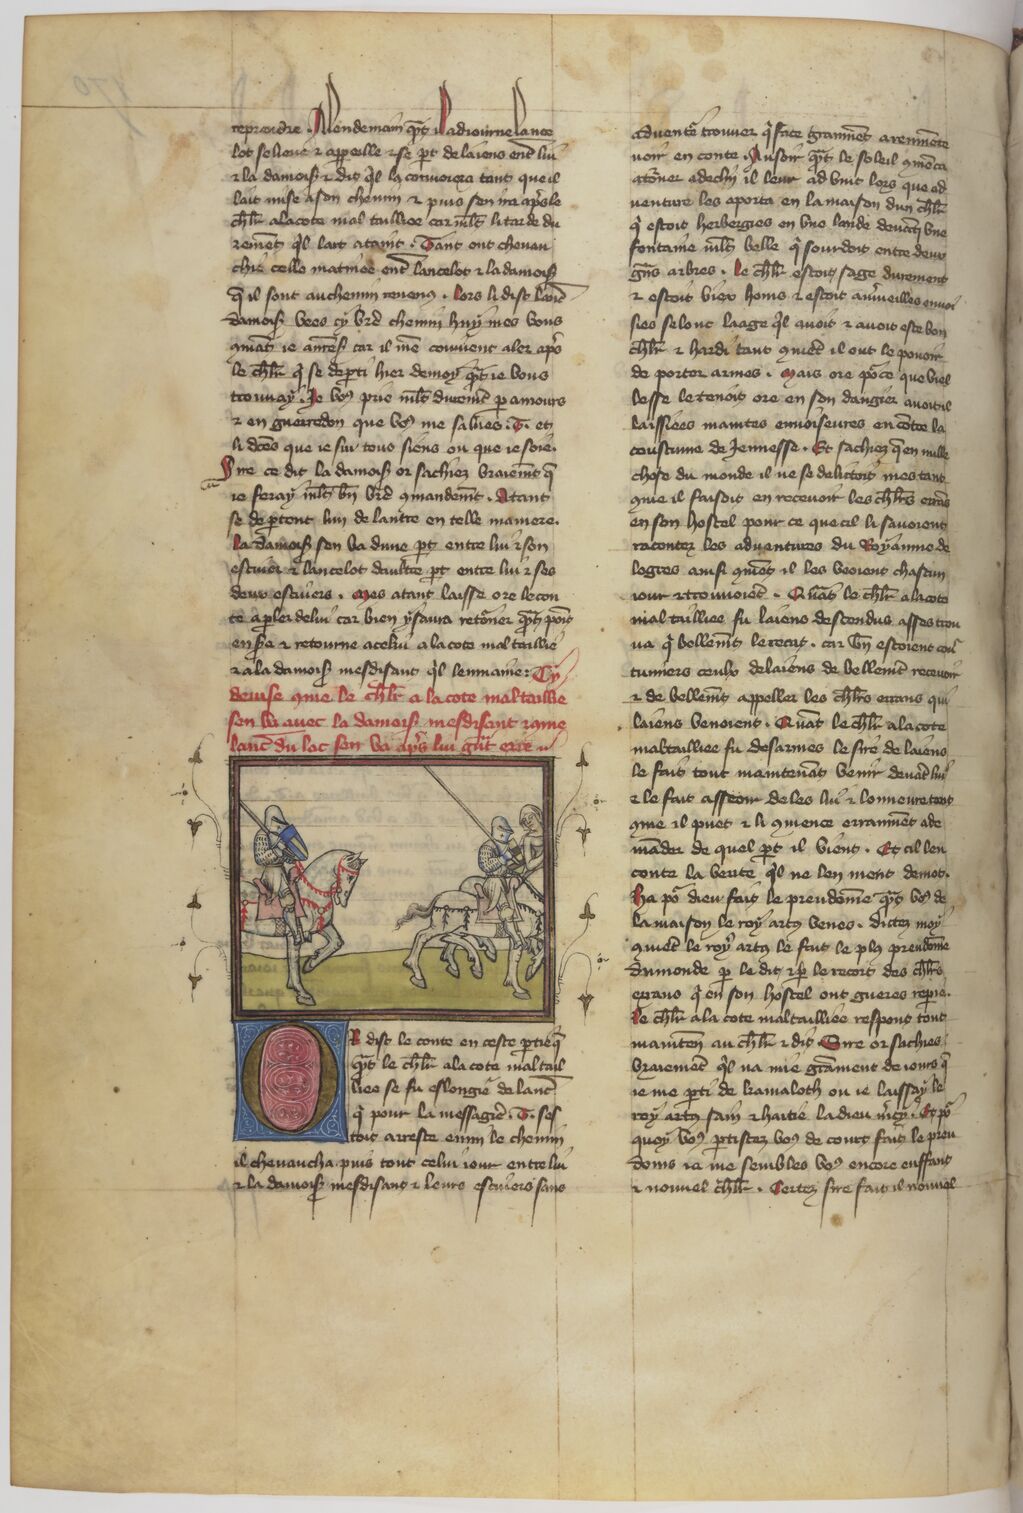 reprendre . Lendemain qͣt il adiourne lance
lot se lieue ⁊ appeille ⁊ se pt de laiens entͤ lui
⁊ la damoisͤ ⁊ dit ql la convoiera tant que il
lait mise a son chemin ⁊ puis sen ira apͤs le
chlr̃ a la cote mal tailliee car mlt̃ li tarde du
remẽt ql lait ataint . Tant ont chevau
chie celle matinee entͤ lancelot ⁊ la damoisͤ
q̃ il sont au chemin venuꝰ . Lors li dist lanc̃
damoisͤ vees cy vr̃e chemin huy mes vous
le chlr̃ q̃ se departi hier de moy qͣt ie vous
trouvay . Je voꝰ prie mlt̃ durem̃t p amours
⁊ en guerredon que voꝰ me salues .T. et
li dictes que ie sui tous siens ou que ie soie .
Sire ce dit la damoisͤ or sachiez vraiem̃t q̃
ie feray mlt̃ bn̄ vr̃e ꝯmandem̃t . Atant
se deptent lun de lautre en telle maniere .
la damoisͤ sen va dune pt entre lui ⁊ son
escuier ⁊ lancelot daultre pt entre lui ⁊ ses
deux escuiers . Mes atant laisse ore le con
te a pler de lui car bien y saura retõner qͣt point
en sͤra ⁊ retourne a celui a la cote mal tailliee
⁊ a la damoisͤ mesdisant ql lenmaine : Cy
devise ꝯme le chlr̃ a la cote maltaillie
sen va avec la damoisͤ mesdisant ⁊ ꝯme
lanc̃ du lac sen va apͤs lui gͣt erre
Or dist le conte en ceste partie q̃
qͣt le chlr̃ a la cote mal tail
liee se fu eslongie de lanc̃
q̃ pour la messagiere .T. ses
toit arreste enmi le chemin
il chevaucha puis tout celui iour entre lui
⁊ la damoisͤ mesdisant ⁊ leurs escuiers sans
adventͤ trouver q̃ face gramment a ramẽte
voir en conte . Au soir qͣt le soleil ꝯmẽca
a tõner a declin il leur advint lors que ad
venture les aporta en la maison dun chlr̃
q̃ estoit herbergies en une lande devant une
fontaine mlt̃ belle q̃ sourdoit entre deux
gͣns arbres . Le chlr̃ estoit sage durement
⁊ estoit vieux homs ⁊ estoit a m̃veilles envoi
sies selonc laage ql avoit ⁊ avoit este bon
chlr̃ ⁊ hardi tant ꝯme il out le povoir
de porter armes . Mais ore por ce que viel
lesse le tenoit ore en son dangier avoit il
laissiees maintes envoiseures en cõtre la
coustume de Jennesse . Et sachiez q̃ en nulle
chose du monde il ne se delictoit mes tant
ꝯme il faisoit en recevoir les chlr̃s errãs
en son hostel pour ce que cil li savoient
racontez les adventures du Royaume de
logres ainsi ꝯmẽt il les veoient chascun
iour ⁊ trouvoiẽt . Quãt le chlr̃ a la cote
mal tailliee fu laiens descendus asses trou
va q̃ bellem̃t le recut . car bn̄ estoient cous
tumiers ceulx de laiens de bellem̃t recevoir
⁊ de bellem̃t appeller les chlr̃s errans qui
laiens venoient . Quãt le chlr̃ a la cote
maltailliee fu desarmes le sire de laiens
le fait tout maintenãt venir devãt lui
⁊ le fait asseoir de les lui ⁊ lonneure tant
ꝯme il puet ⁊ li ꝯmence erranm̃t a de
mãder de quel pt il vient . Et cil len
conte la verite ql ne len ment de mot .
Ha por dieu fait le preudõme qͣt voꝰ de
la maison le roy artꝰ venes . dictes moy
ꝯm̃et le roy artꝰ le fait le plꝰ preudome
du monde p le dit ⁊ p le recort des chlr̃s
errans q̃ en son hostel ont gueres repaire .
Le chlr̃ a la cote maltailliee respont tout
mainten̄ au chlr̃ ⁊ dit . Sire or sachies
vraiem̃t ql na mie gram̃ent de iours q̃
ie me parti de kamaloth ou ie laissay le
roy artꝰ sain ⁊ haitie la dieu m̃cy . Et por
quoy voꝰ ptistez voꝰ de court fait le preu
doms ia me sembles voꝰ encore enffant
⁊ nouvel chlr̃ . Certez sire fait il nouvel